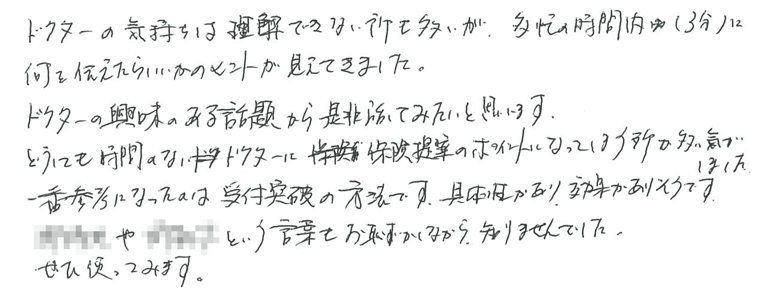 ドクターの気持ちは理解できない所も多いが、多忙の時間内(3分)に
何を伝えたらいいかのヒントが見えてきました。
ドクターの興味のある話題から是非試してみたいと思います。
どうしても時間のないドクターに 保険提案のポイントになっている所が多い気がしました
一番参考になったのは受付突破の方法です。具体性があり、効果がありそうです。
や という言葉をお恥ずかしながら、知りませんでした。
ぜひ使ってみます。